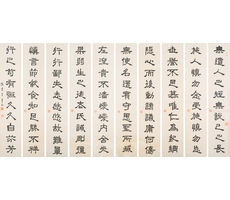 無道人之短無說己之長
施人慎勿念受施慎勿忘
世譽不足慕唯仁為紀綱
隱心而後動謗議庸何傷
無使名過實守愚聖所臧
在涅貴不淄曖曖內含光
柔弱生之徒老氏誡剛強
行行鄙夫志悠悠故難量
慎言節飲食知足勝不祥
行之苟有恆久久自芬芳